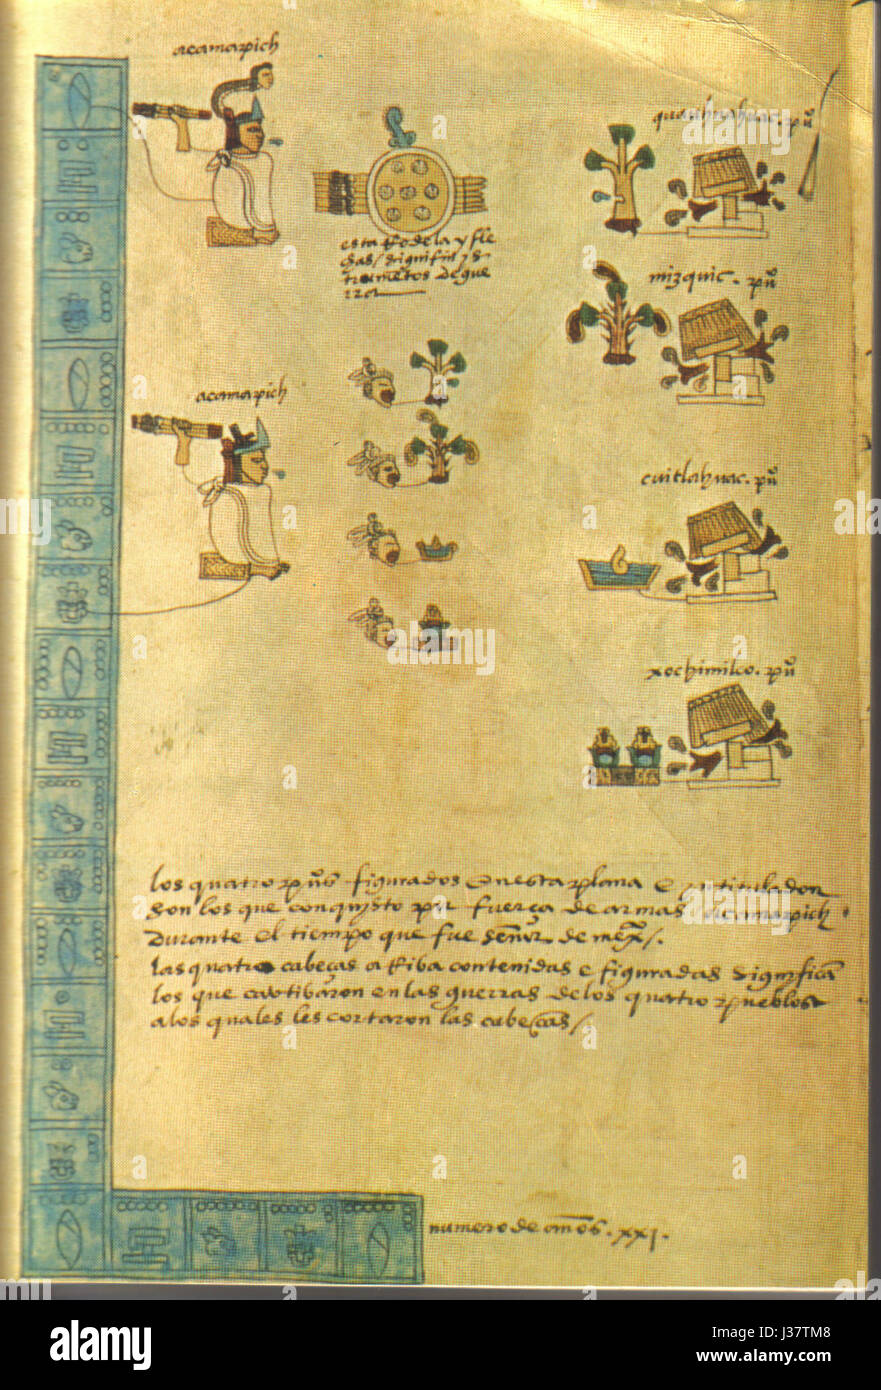 acamapich
esta Rodela y fle
chas / significā yns
trumētos de gue
rra
acamapich
quauhnahuac. pūo
mizquic. pūo
cuitlahuac. pūo
xochimilco. pūo
los quatro pūos figurados en esta plana e yntitulados
son los que conquisto por fuerça de armas / acamapich
durante el tiempo que fue señor de mexº /.
las quatro cabeças aRiba contenidas e figuradas significā
los que cautibaron en las guerras de los quatro pueblos
a los quales les cortaron las cabeças /
numero de años. xxi.
alamy
alamy stock photo
J37TM8
www.alamy.com